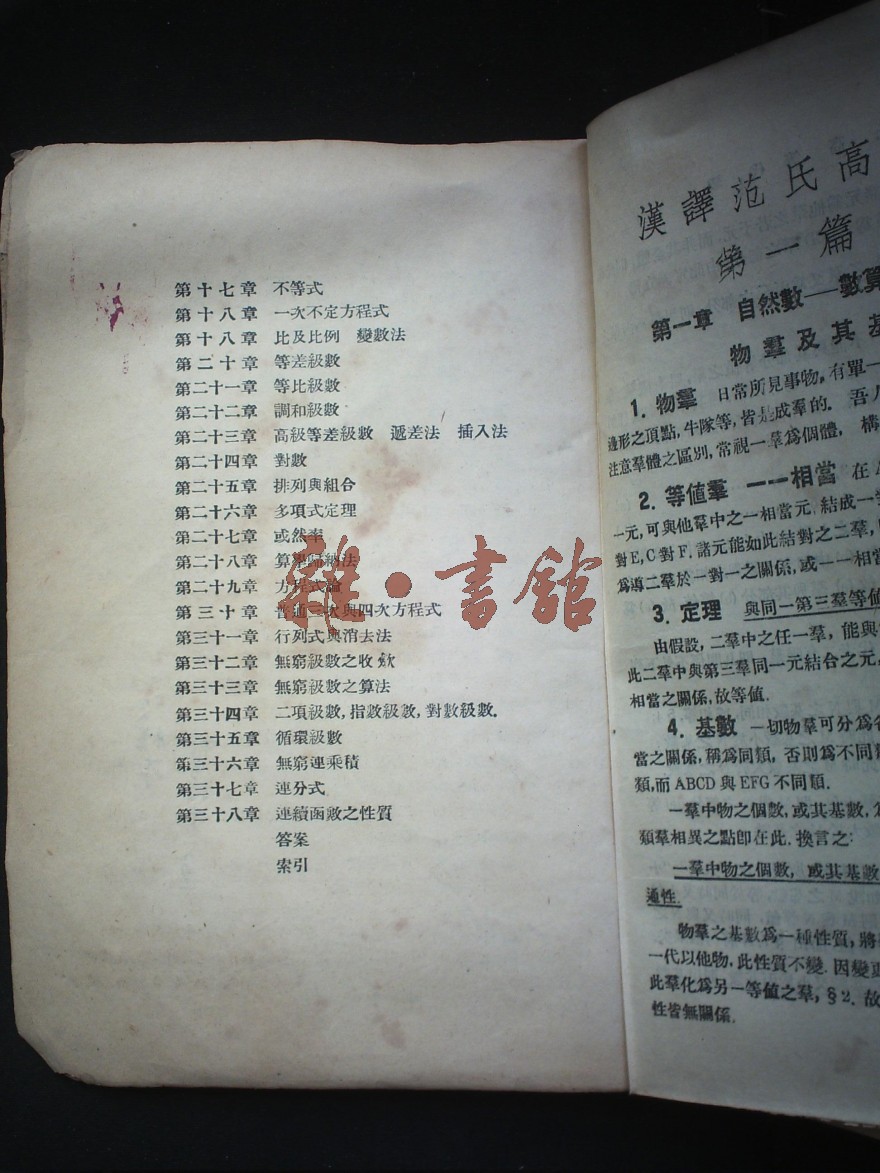 第十七章 不等式
第十八章 一次不定方程式
第十八章 比及比例 變數法
第二十章 等差級數
第二十一章 等比級數
第二十二章 調和級數
第二十三章 高級等差級數 遞差法 插入法
第二十四章 對數
第二十五章 排列與組合
第二十六章 多項式定理
第二十七章 或然率
第二十八章 算學歸納法
第二十九章 方程式論
第三十章 普通三次與四次方程式
第三十一章 行列式與消去法
第三十二章 無窮級數之收斂
第三十三章 無窮級數之算法
第三十四章 二項級數,指數級數,對數級數.
第三十五章 循環級數
第三十六章 無窮連乘積
第三十七章 連分式
第三十八章 連續函數之性質
答案
索引
雜·書館
漢譯范氏高
第一篇
第一章 自然數——數算
物羣及其基
1. 物羣 日常所見事物,有單一
邊形之頂點,牛隊等,皆是成羣的. 吾人
注意羣體之區別,常視一羣爲個體, 構
2. 等值羣 一一相當 在A
一元,可與他羣中之一相當元,結成一對
對E,C對F.諸元能如此結對之二羣,
爲導二羣於一對一之關係,或一一相當
3. 定理 與同一第三羣等值
由假設,二羣中之任一羣,能與
此二羣中與第三羣同一元結合之元,
相當之關係,故等值.
4. 基數 一切物羣可分爲各
當之關係,稱爲同類, 否則爲不同類
類,而ABCD與EFG不同類.
一羣中物之個數,或其基數,
類羣相異之點卽在此. 換言之:
一羣中物之個數, 或其基數
通性.
物羣之基數爲一種性質,將
一代以他物,此性質不變. 因變更
此羣化爲另一等值之羣,§2. 故
性皆無關係.